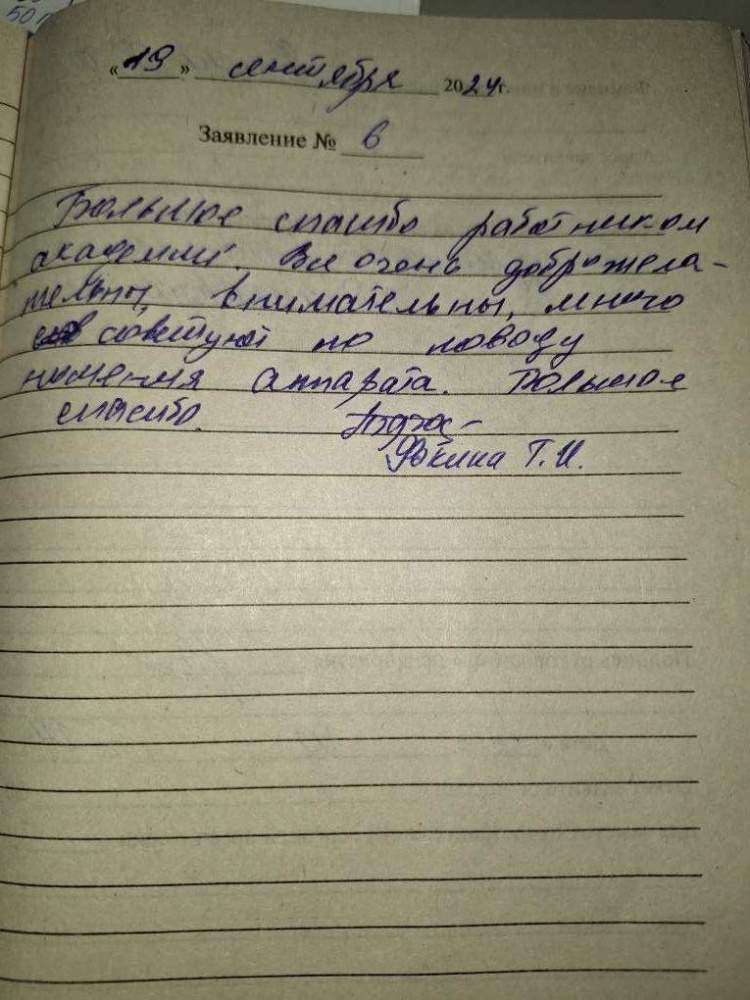 50
« 19 » сентября 2024г.
Заявление № 6
Большое спасибо работникам
академии. Все очень доброжела-
тельны, внимательны, много
советуют по поводу
ношения аппарата. Большое
спасибо.
Т.И.